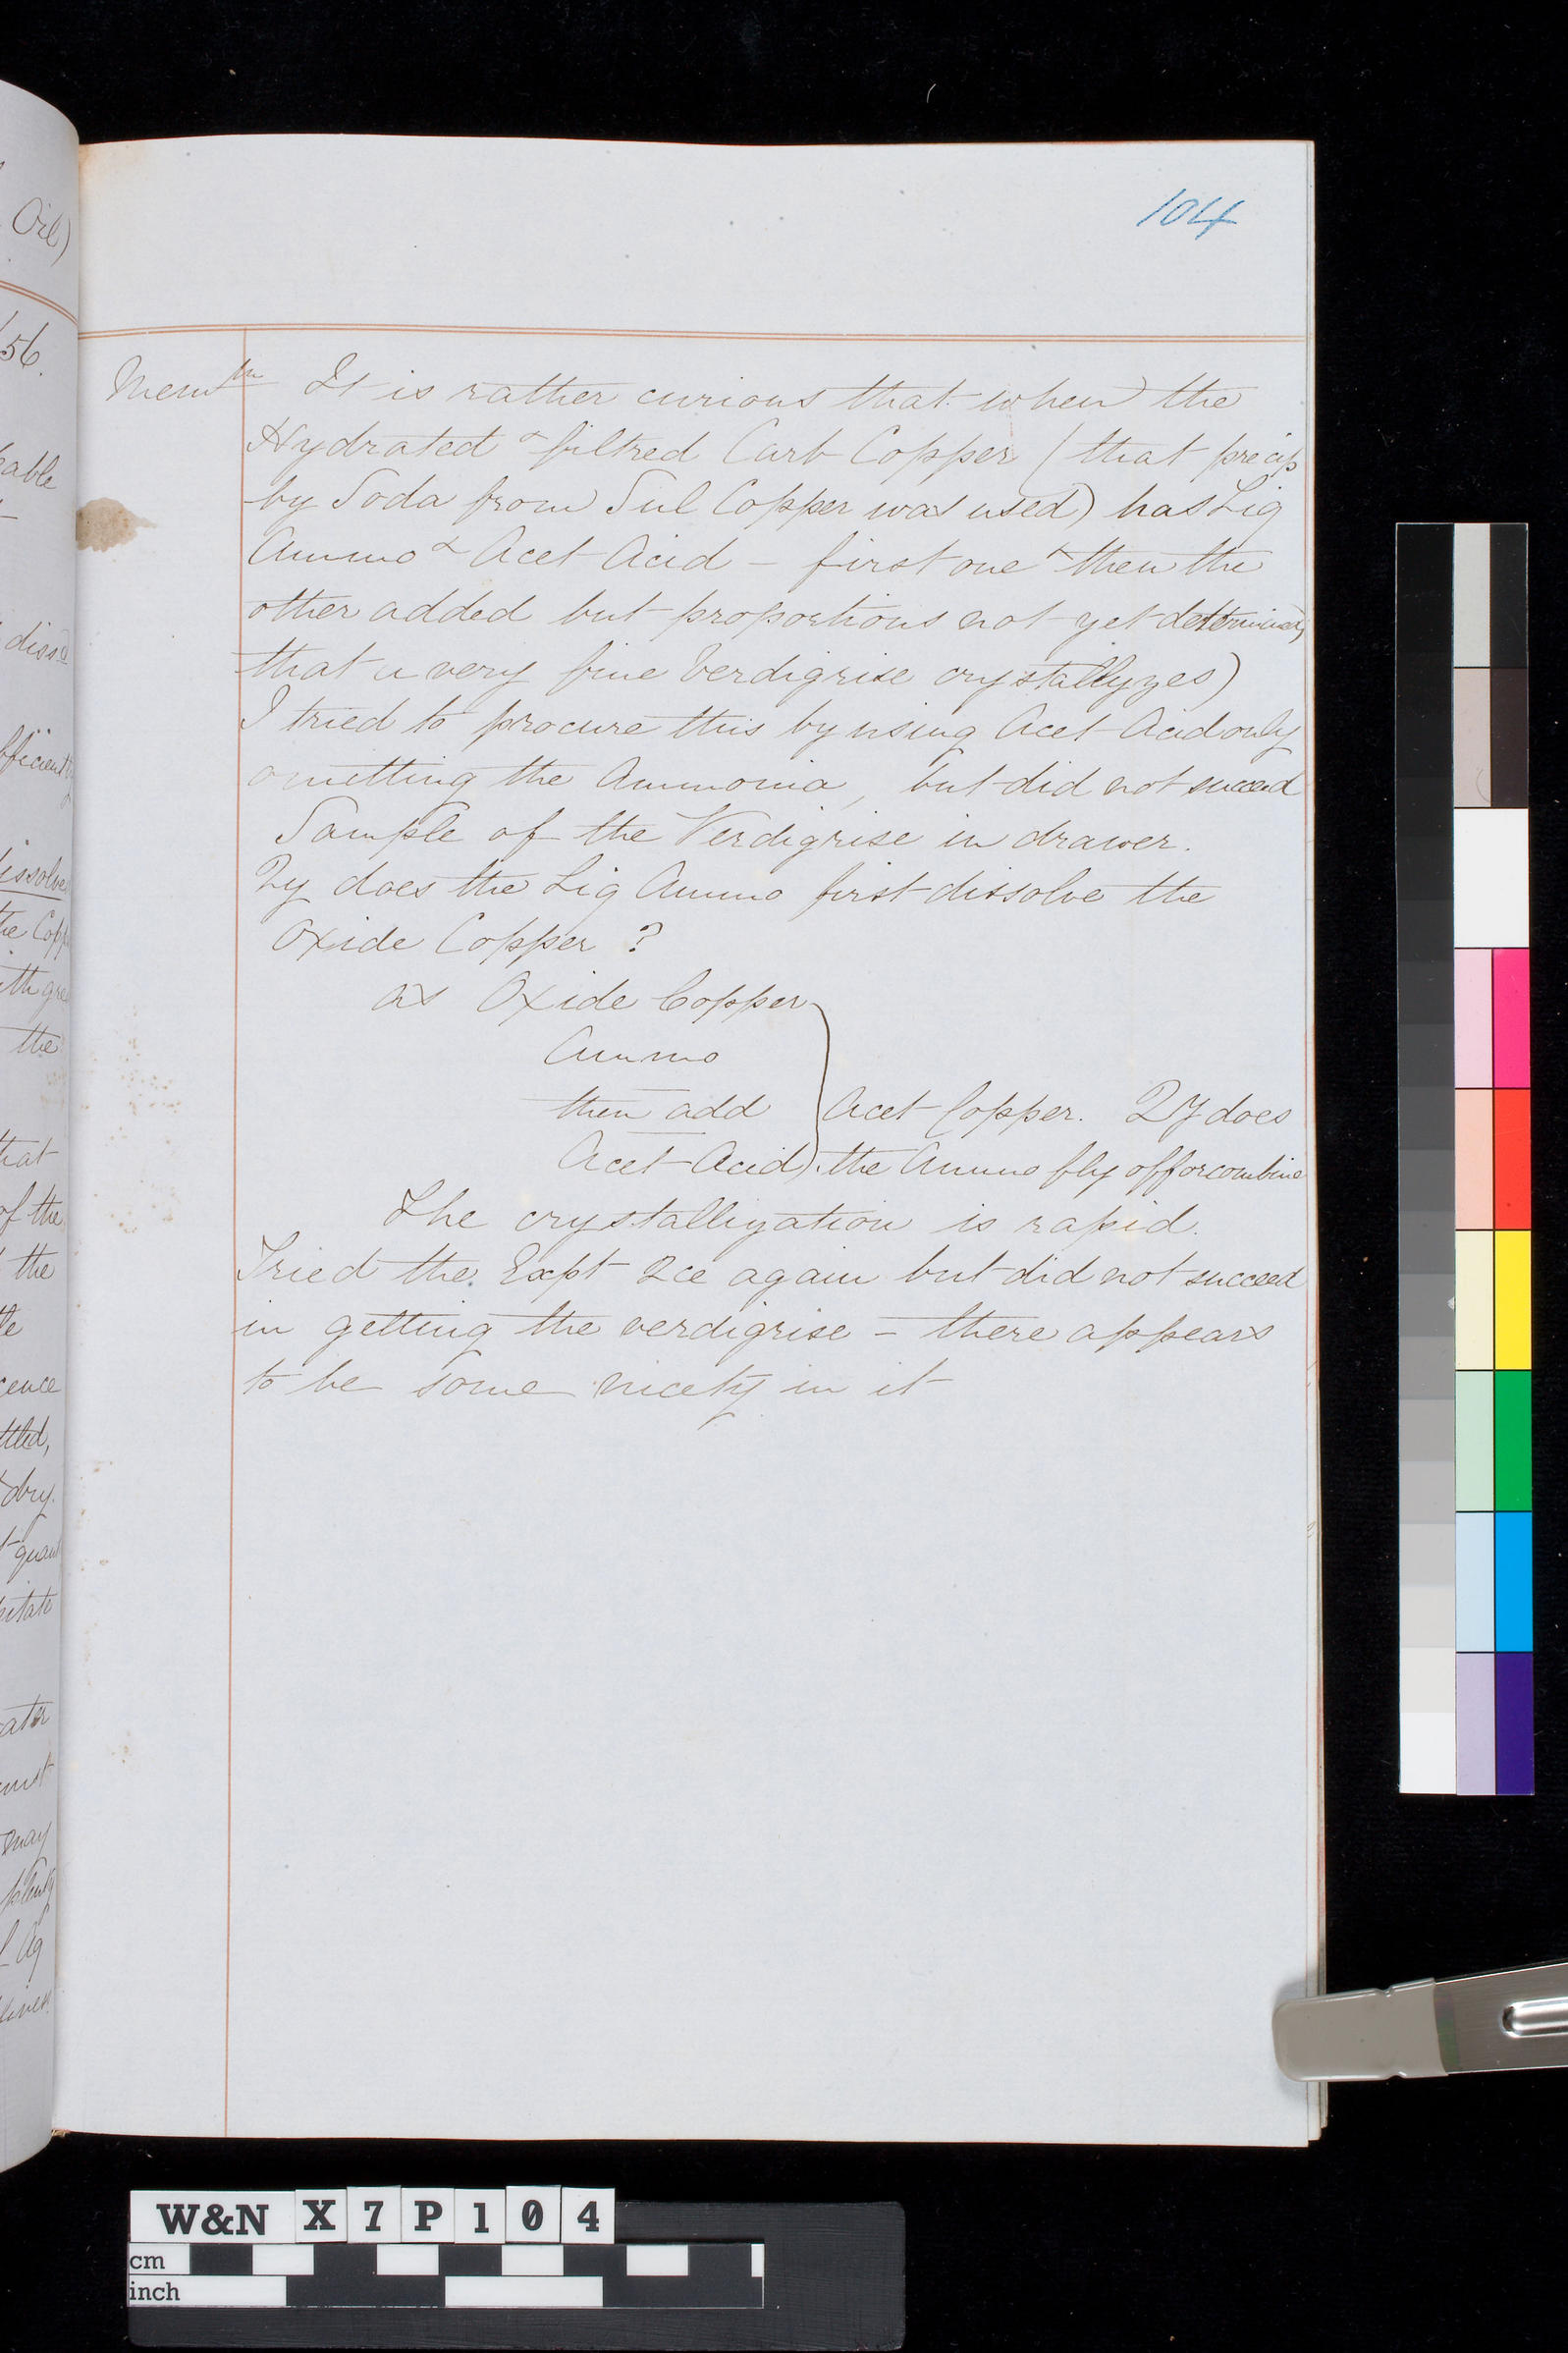 104
Memdm It is rather curious that when the
Hydrated & filtred Carb Copper (that precip
by Soda from Sul Copper was used) has Liq
Ammo & Acet Acid - first one & then the
other added but proportions not yet determined,
that a very fine Verdigrise crystallyzes)
I tried to procure this by using Acet Acid only
omitting the Ammonia, but did not succeed
Sample of the Verdigrise in drawer.
Qy does the Liq Ammo first dissolve the
Oxide Copper ?
as Oxide Copper
Ammo
then add Acet Copper. Qy does
Acet Acid). the Ammo fly off or combine
The crystallization is rapid.
Tried the Expt 2ce again but did not succeed
in getting the verdigrise - there appears
to be some nicety in it
Oil)
56.
able
diss d
fficient
issolve
the Copp
ith gre
the
hat
of the
the
ence
ttled,
& dry.
quan
itate
ater
must
may
Aq
W&N X 7 P 1 0 4
cm
inch